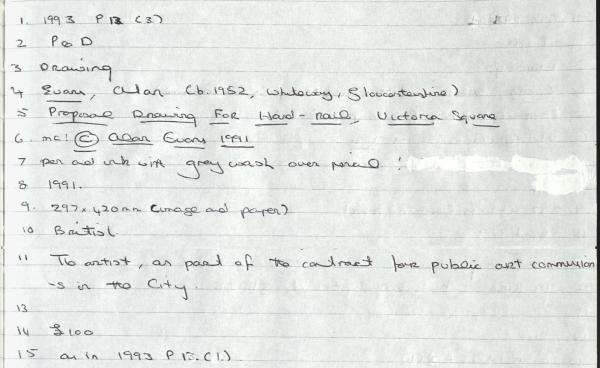 1. 1993 P13 (3)
2 P&D
3 Drawing
4 Evans, Alan (b. 1952, Whiteway, Gloucestershire)
5 Proposal Drawing For Hand-rail, Victoria Square
6. mc: © Alan Evans 1991
7 pen and ink with grey wash over pencil
8 1991.
9. 297 x 420mm (image and paper)
10 British
11 The artist, as part of the contract for public art commission
-s in the City.
13
14 £100
15 as in 1993 P13.(1.)